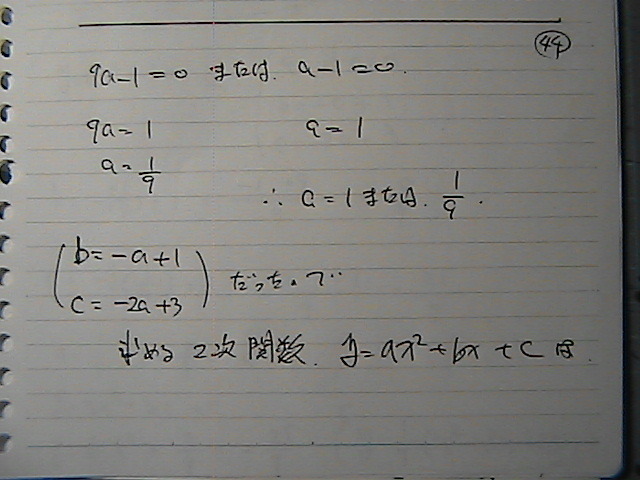 44
9a-1=0 または. a-1=0.
9a=1 a=1
a=1/9
∴ a=1 または. 1/9.
b=-a+1
c=-2a+3
だった。で…
求める 2次関数. y=ax²+bx+c は.